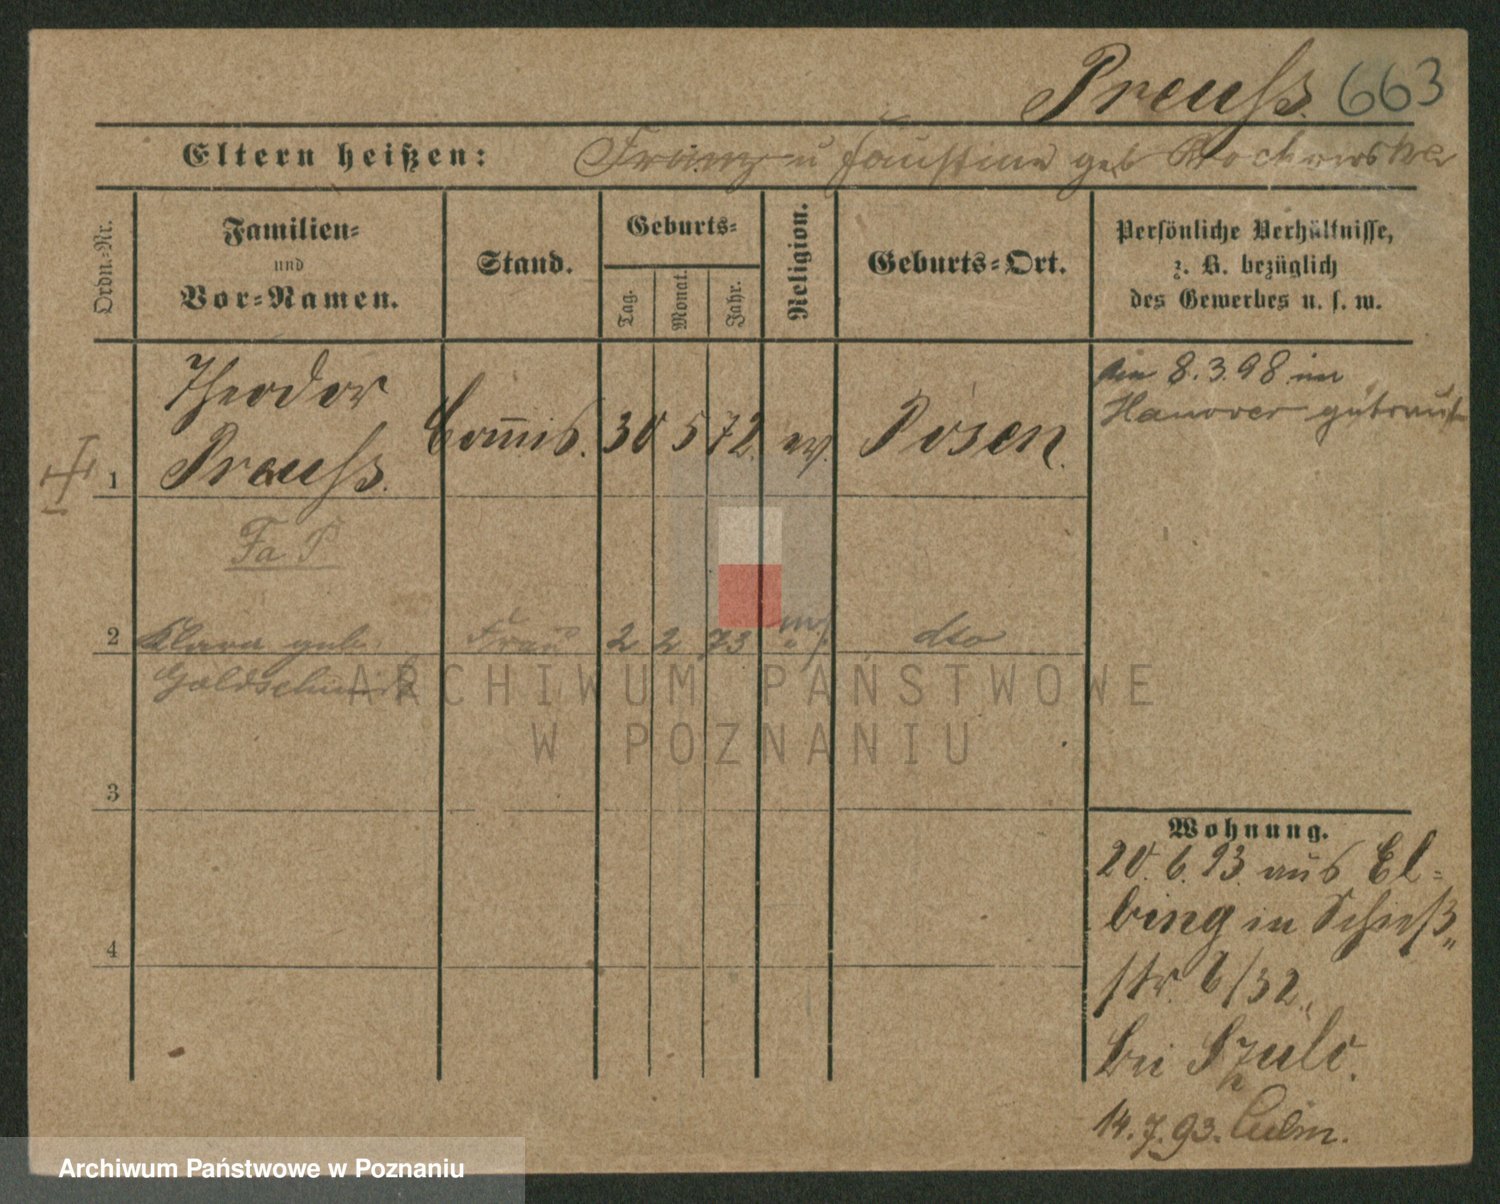 Preuß. 663
Eltern heißen: Franz u Faustine geb
Ordn.-Nr.
Familien-
und
Vor-Namen.
Stand.
Geburts-
Tag.
Monat.
Jahr.
Religion.
Geburts-Ort.
Persönliche Verhältnisse,
z. B. bezüglich
des Gewerbes u. s. w.
1
Theodor
Preuß.
Commis. 30 5 72. ev. Posen.
Am 8.3.98 in
Hanover getraut
Fa P
2
Klara geb.
Goldschmidt
Frau 2 2 73 dto
3
4
Wohnung.
20.6.93. aus El-
bing in Schieß-
str. 6/32.
bei Szulc.
n
14.7.93. Culm.
ARCHIWUM PAŃSTWOWE
W POZNANIU
Archiwum Państwowe w Poznaniu